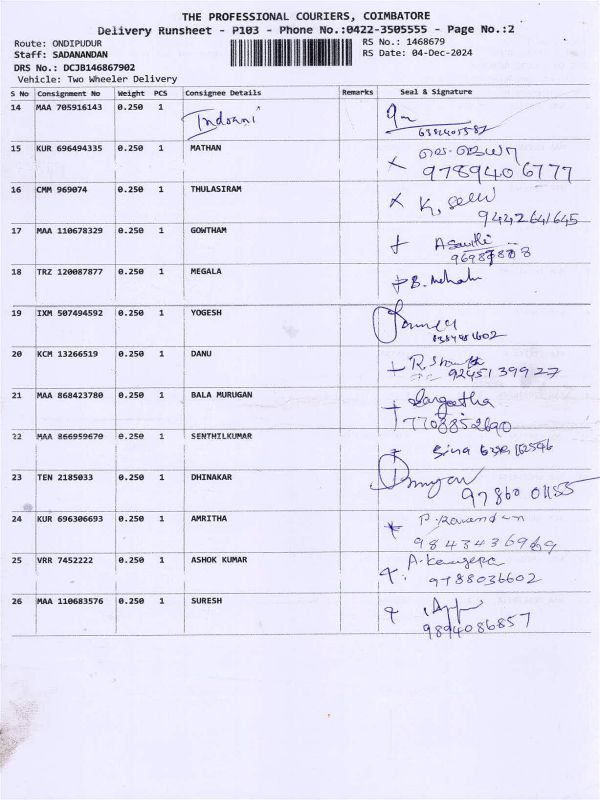 THE PROFESSIONAL COURIERS, COIMBATORE
Delivery Runsheet - P103 - Phone No.:0422-3505555 - Page No.:2
Route: ONDIPUDUR RS No.: 1468679
Staff: SADANANDAN RS Date: 04-Dec-2024
DRS No.: DCJB146867902
Vehicle: Two Wheeler Delivery
S No Consignment No Weight PCS Consignee Details Remarks Seal & Signature
14 MAA 705916143 0.250 1 Indrani
15 KUR 696494335 0.250 1 MATHAN
9789406777
16 CMM 969074 0.250 1 THULASIRAM K. Selvi
9442641645
17 MAA 110678329 0.250 1 GOWTHAM
18 TRZ 120087877 0.250 1 MEGALA
19 IXM 507494592 0.250 1 YOGESH
20 KCM 13266519 0.250 1 DANU
9245139927
21 MAA 868423780 0.250 1 BALA MURUGAN Sangeetha
7708852690
22 MAA 866959670 0.250 1 SENTHILKUMAR
23 TEN 2185033 0.250 1 DHINAKAR
97860 01155
24 KUR 696306693 0.250 1 AMRITHA
9843436969
25 VRR 7452222 0.250 1 ASHOK KUMAR
9788036602
26 MAA 110683576 0.250 1 SURESH
9894086857